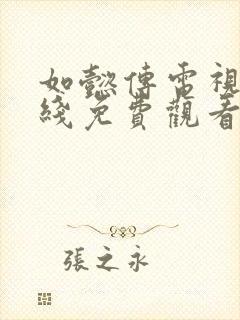 如懿傳電視
綫免費觀看
張之永